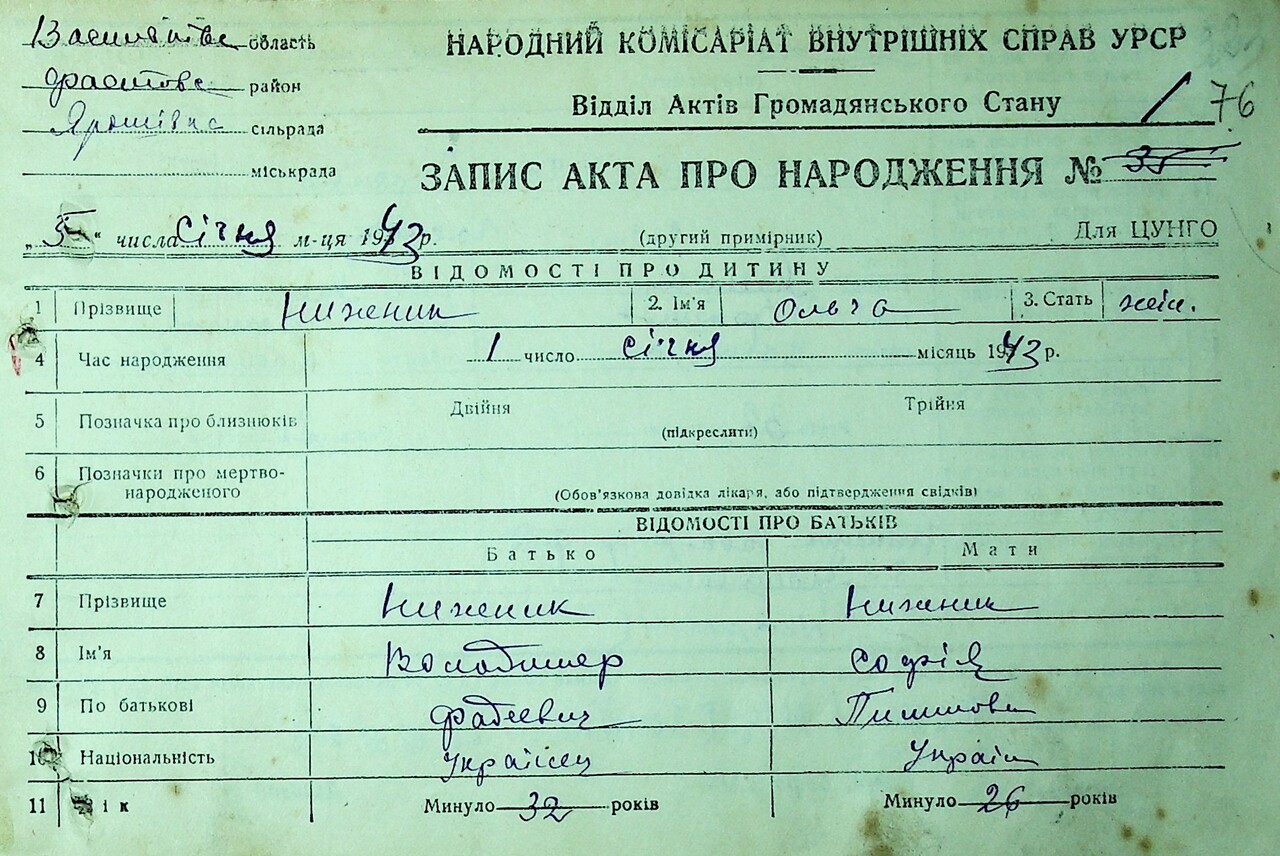 Васильківс область
Фастовс район
Ярошівка сільрада
міськрада
НАРОДНИЙ КОМІСАРІАТ ВНУТРІШНІХ СПРАВ УРСР
Відділ Актів Громадянського Стану
1/76
ЗАПИС АКТА ПРО НАРОДЖЕННЯ № 35
„5“ числа січня м-ця 1943 р.
(другий примірник)
Для ЦУНГО
ВІДОМОСТІ ПРО ДИТИНУ
1 Прізвище Ниженик 2. Ім'я Ольга 3. Стать жін.
4 Час народження 1 число січня місяць 1943 р.
5 Позначка про близнюків Двійня Трійня
(підкреслити)
6 Позначки про мертво-
народженого
(Обов'язкова довідка лікаря, або підтвердження свідків)
ВІДОМОСТІ ПРО БАТЬКІВ
Батько Мати
7 Прізвище Ниженик Ниженик
8 Ім'я Володимер Софія
9 По батькові Фадеевич Пилиповн
10 Національність Українец Україн
11 Вік Минуло 32 років Минуло 26 років